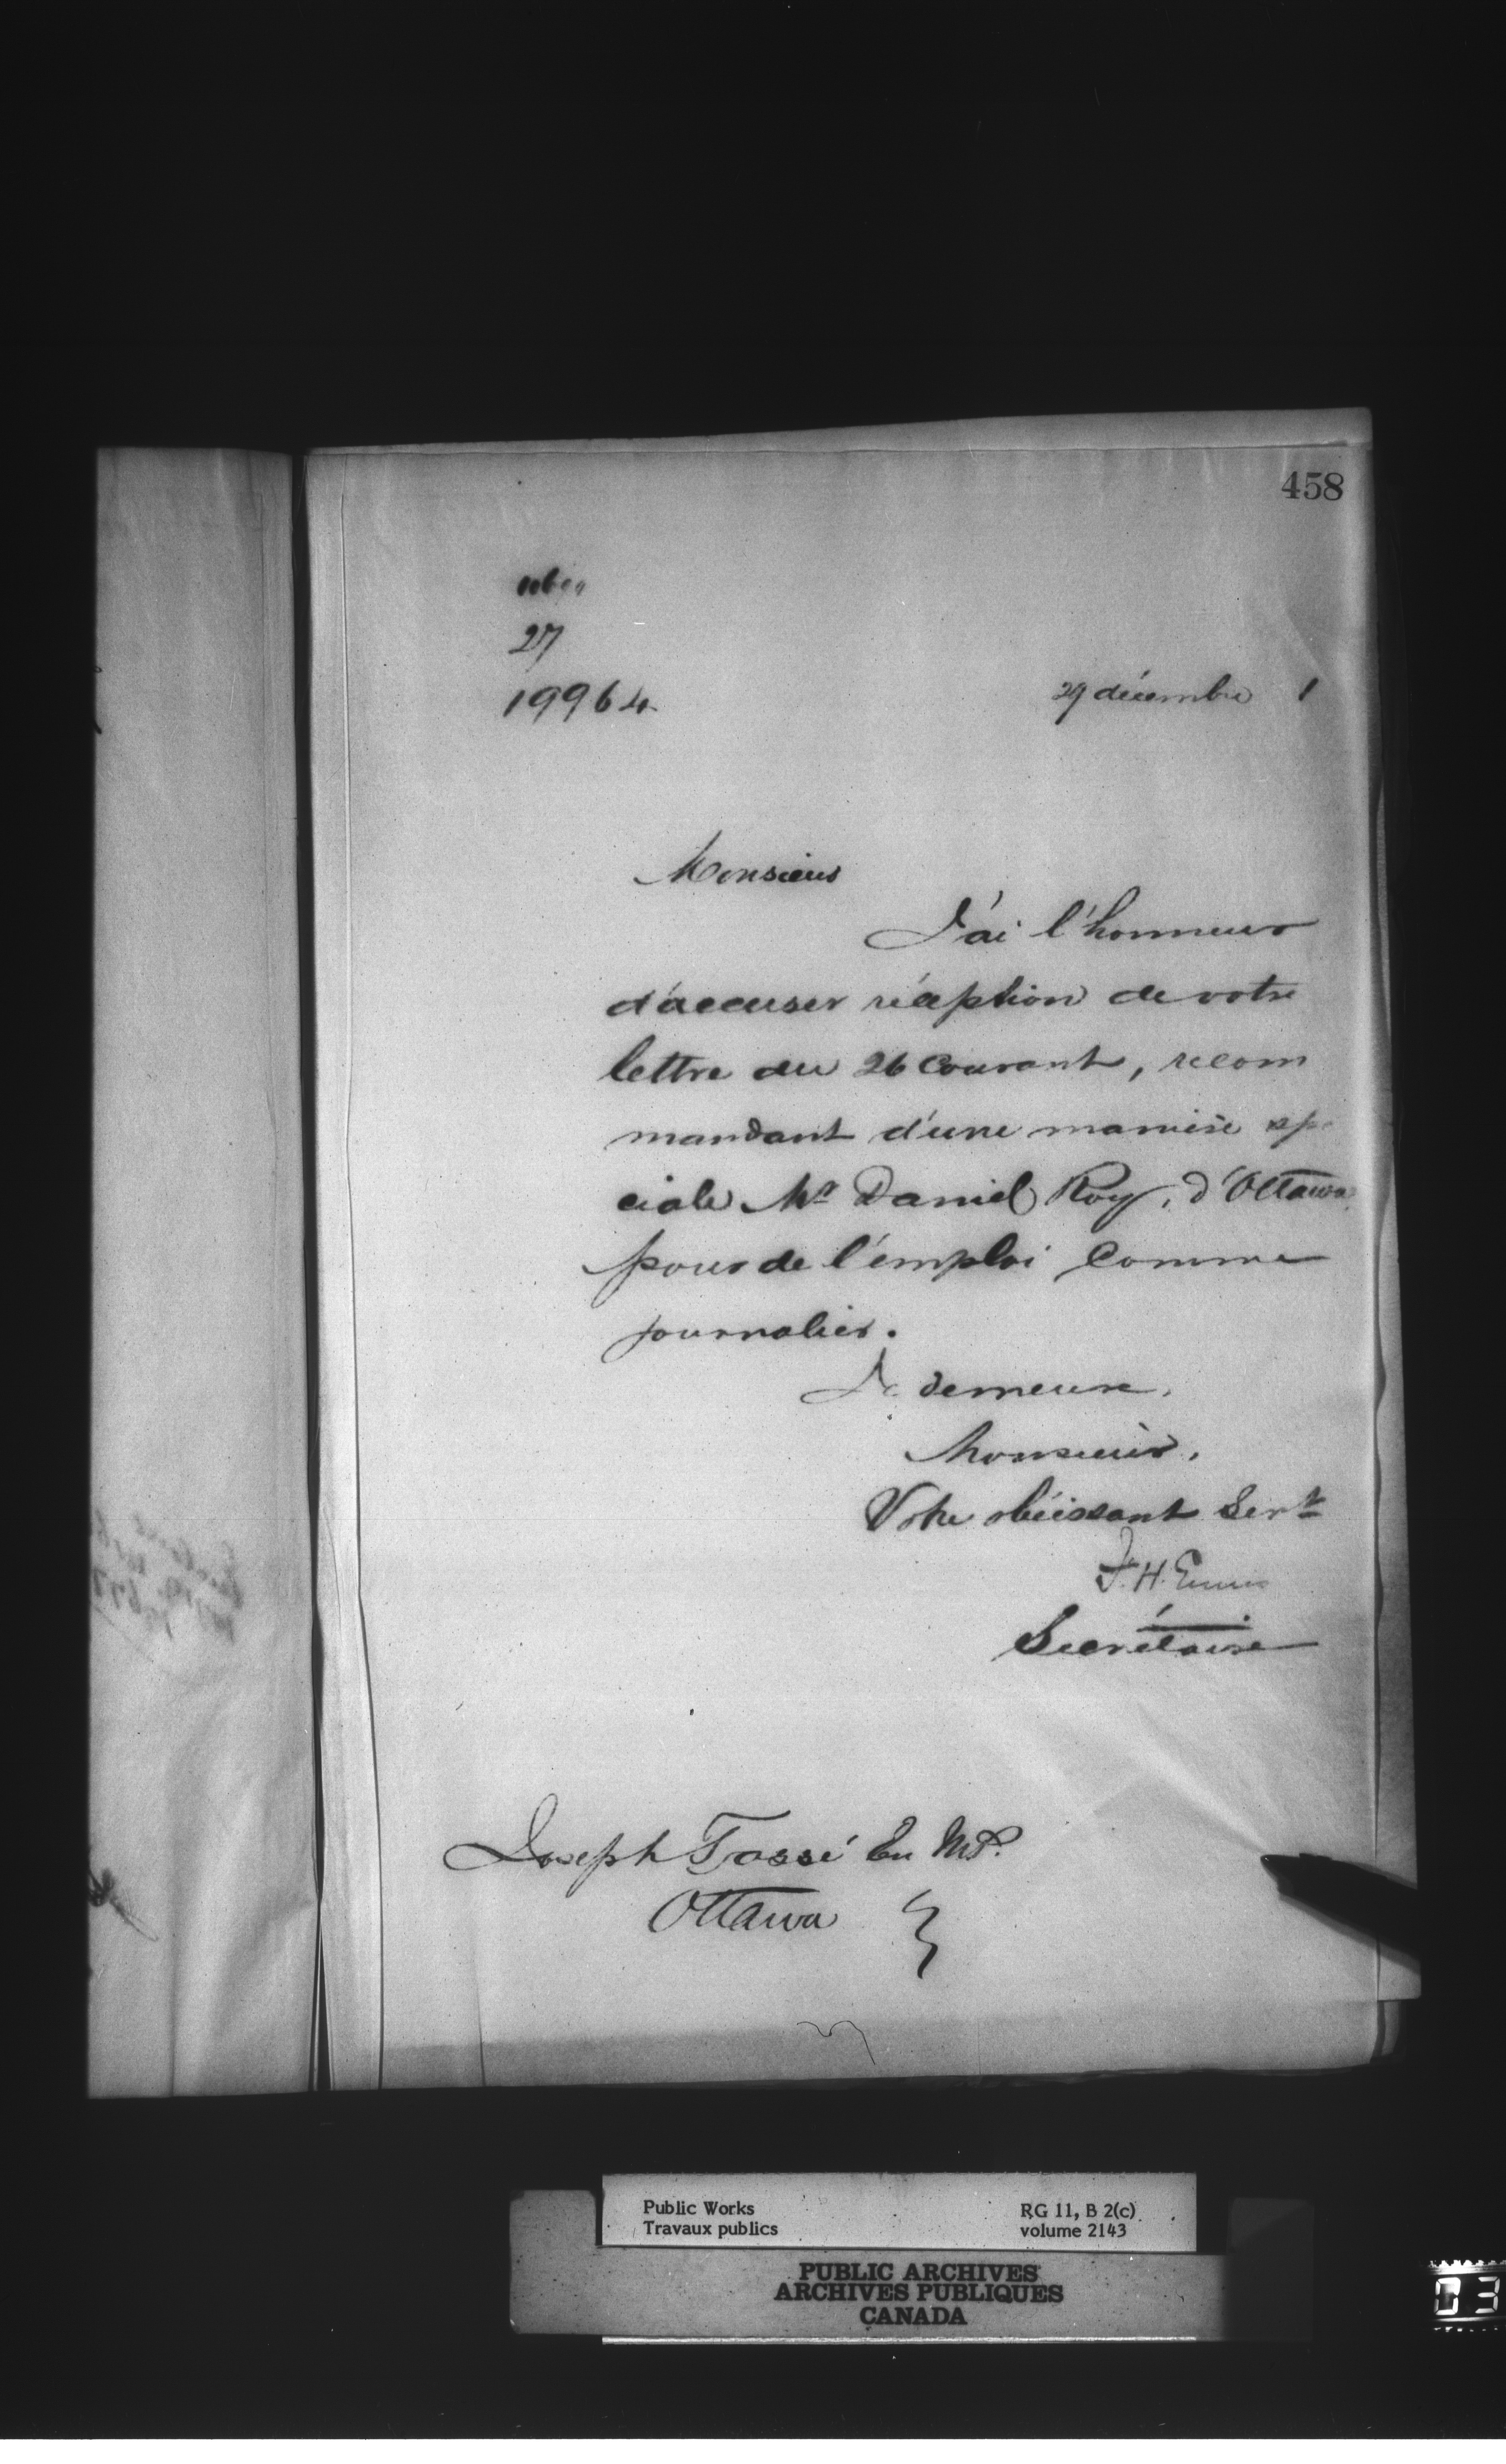 458
27
19964
29 décembre 1
Monsieur
J'ai l'honneur
d'accuser réception de votre
lettre du 26 Courant, recom
mandant d'une manière spé
ciale Mr Daniel Roy, d'Ottawa,
pour de l'emploi Comme
journalier.
Je demeure,
Monsieur,
Votre obéissant Servt
F. H. Ennis
Secrétaire
Joseph Tassé Eu M.P.
Ottawa
Public Works
Travaux publics
RG 11, B 2(c)
volume 2143
PUBLIC ARCHIVES
ARCHIVES PUBLIQUES
CANADA
03